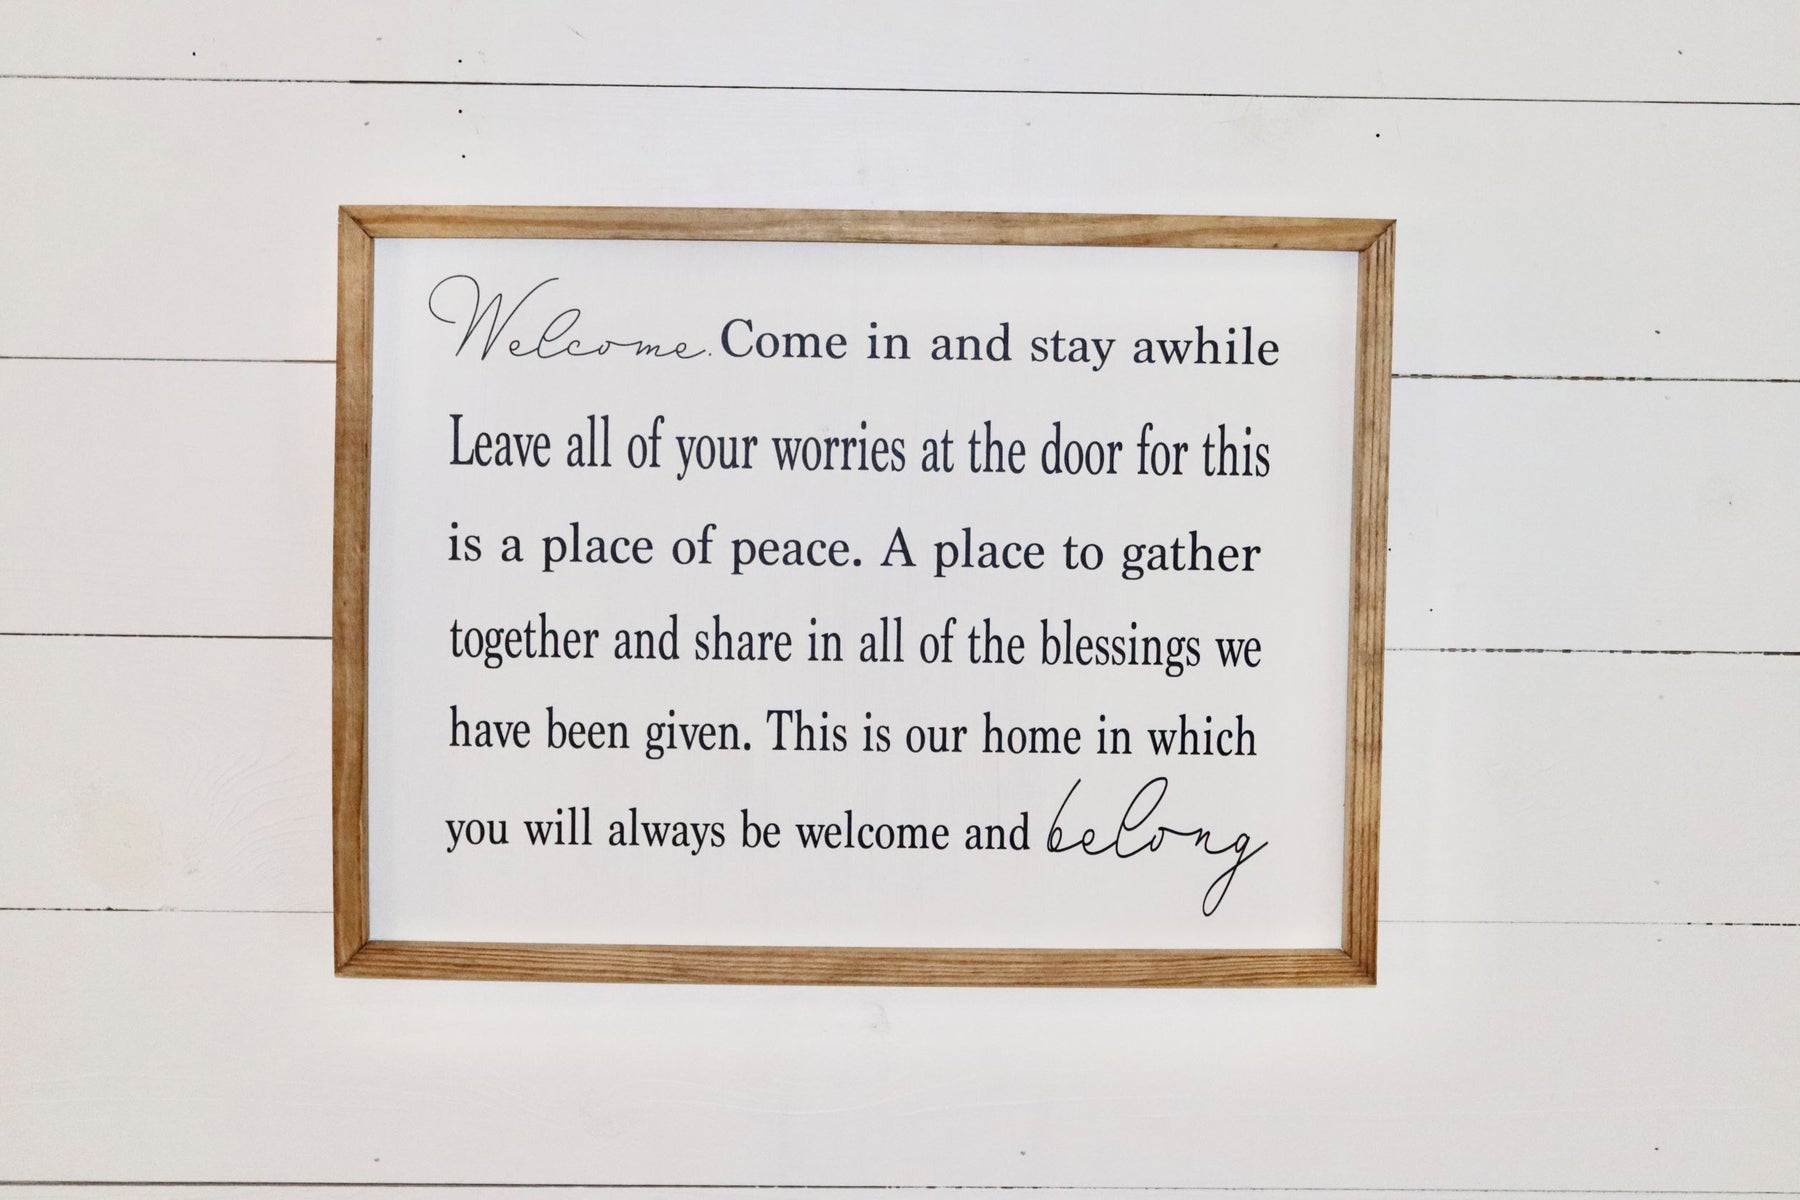 Welcome. Come in and stay awhile
Leave all of your worries at the door for this
is a place of peace. A place to gather
together and share in all of the blessings we
have been given. This is our home in which
you will always be welcome and belong